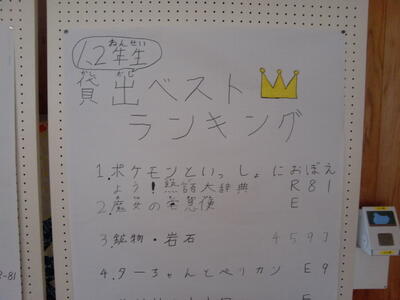 1、2年生
ねんせい
貸出ベスト
かし
ランキング
1.ポケモンといっしょにおぼえ
よう!熟語大辞典 R81
2.魔女の宅急便 E
3 鉱物・岩石 459
4.ターちゃんとペリカン E9